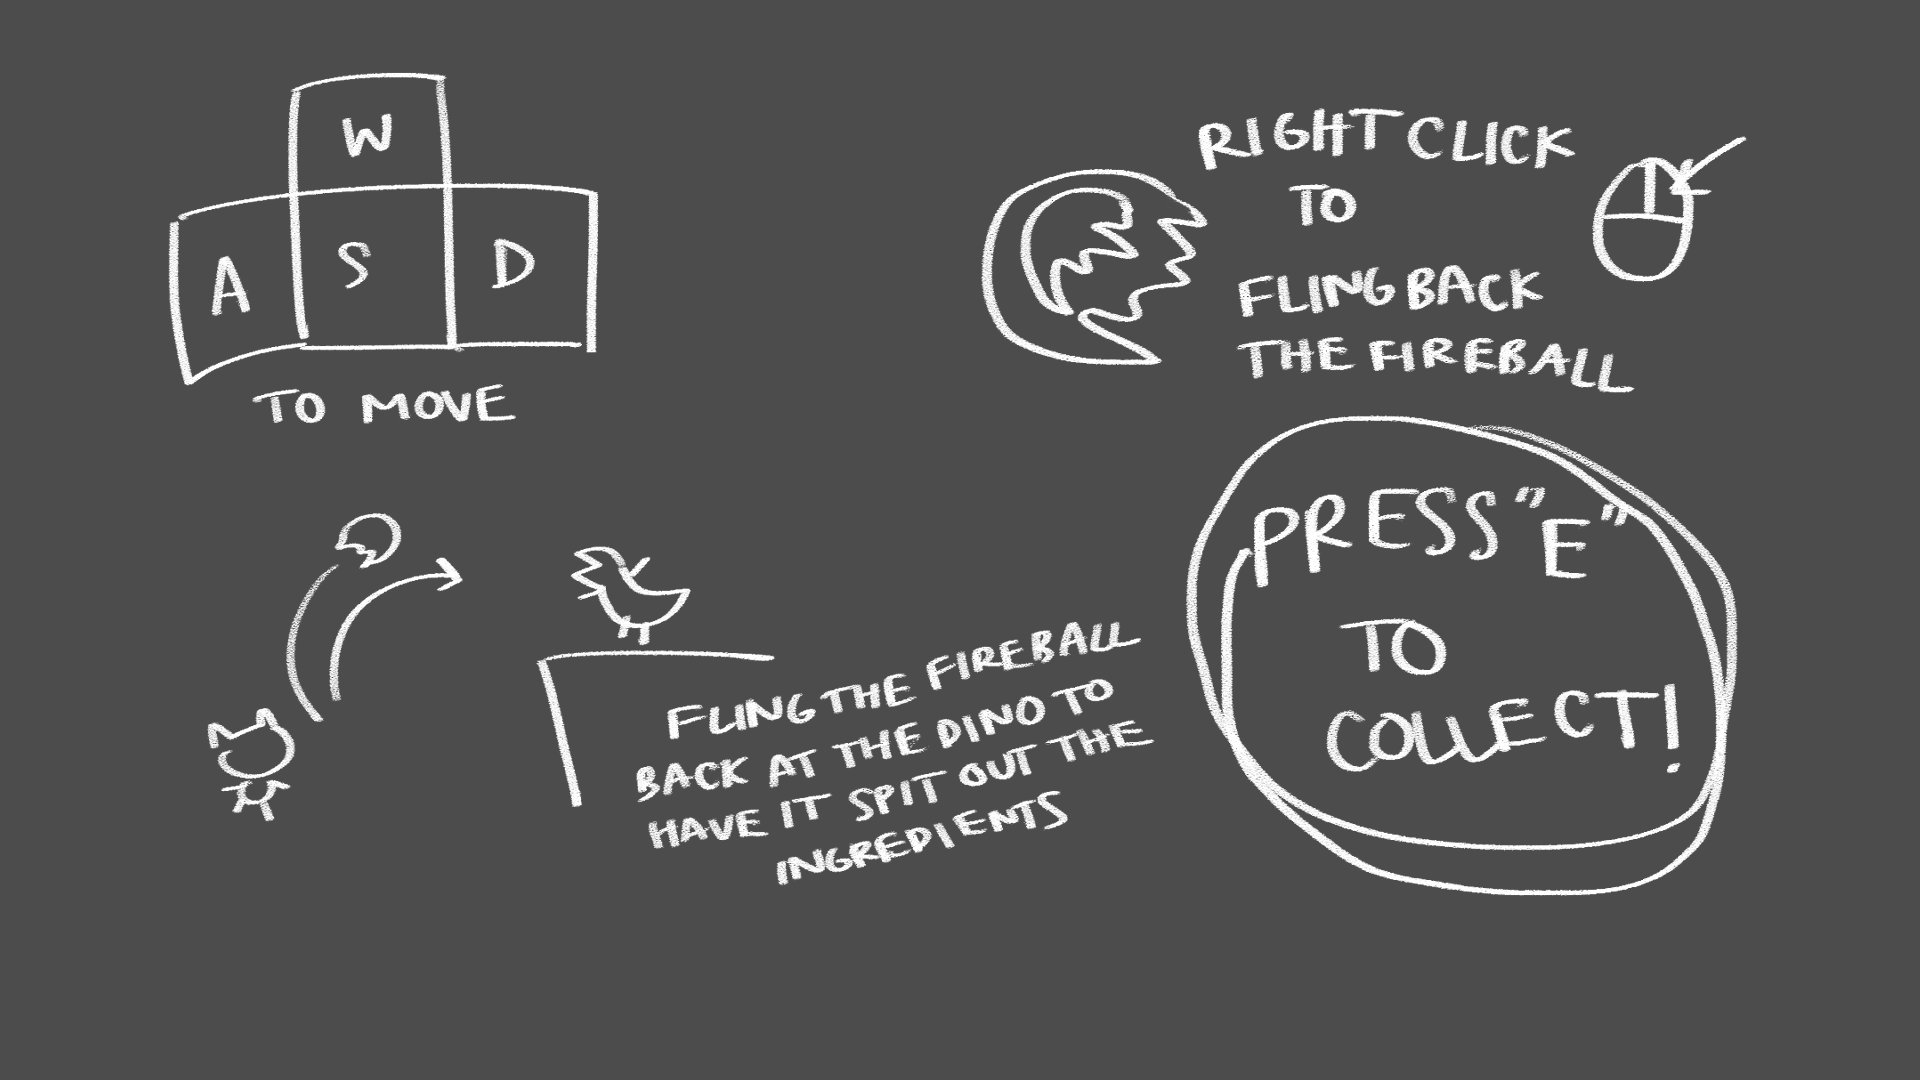 W
A S D
TO MOVE
RIGHT CLICK
TO
FLING BACK
THE FIREBALL
FLING THE FIREBALL
BACK AT THE DINO TO
HAVE IT SPIT OUT THE
INGREDIENTS
PRESS "E"
TO
COLLECT!